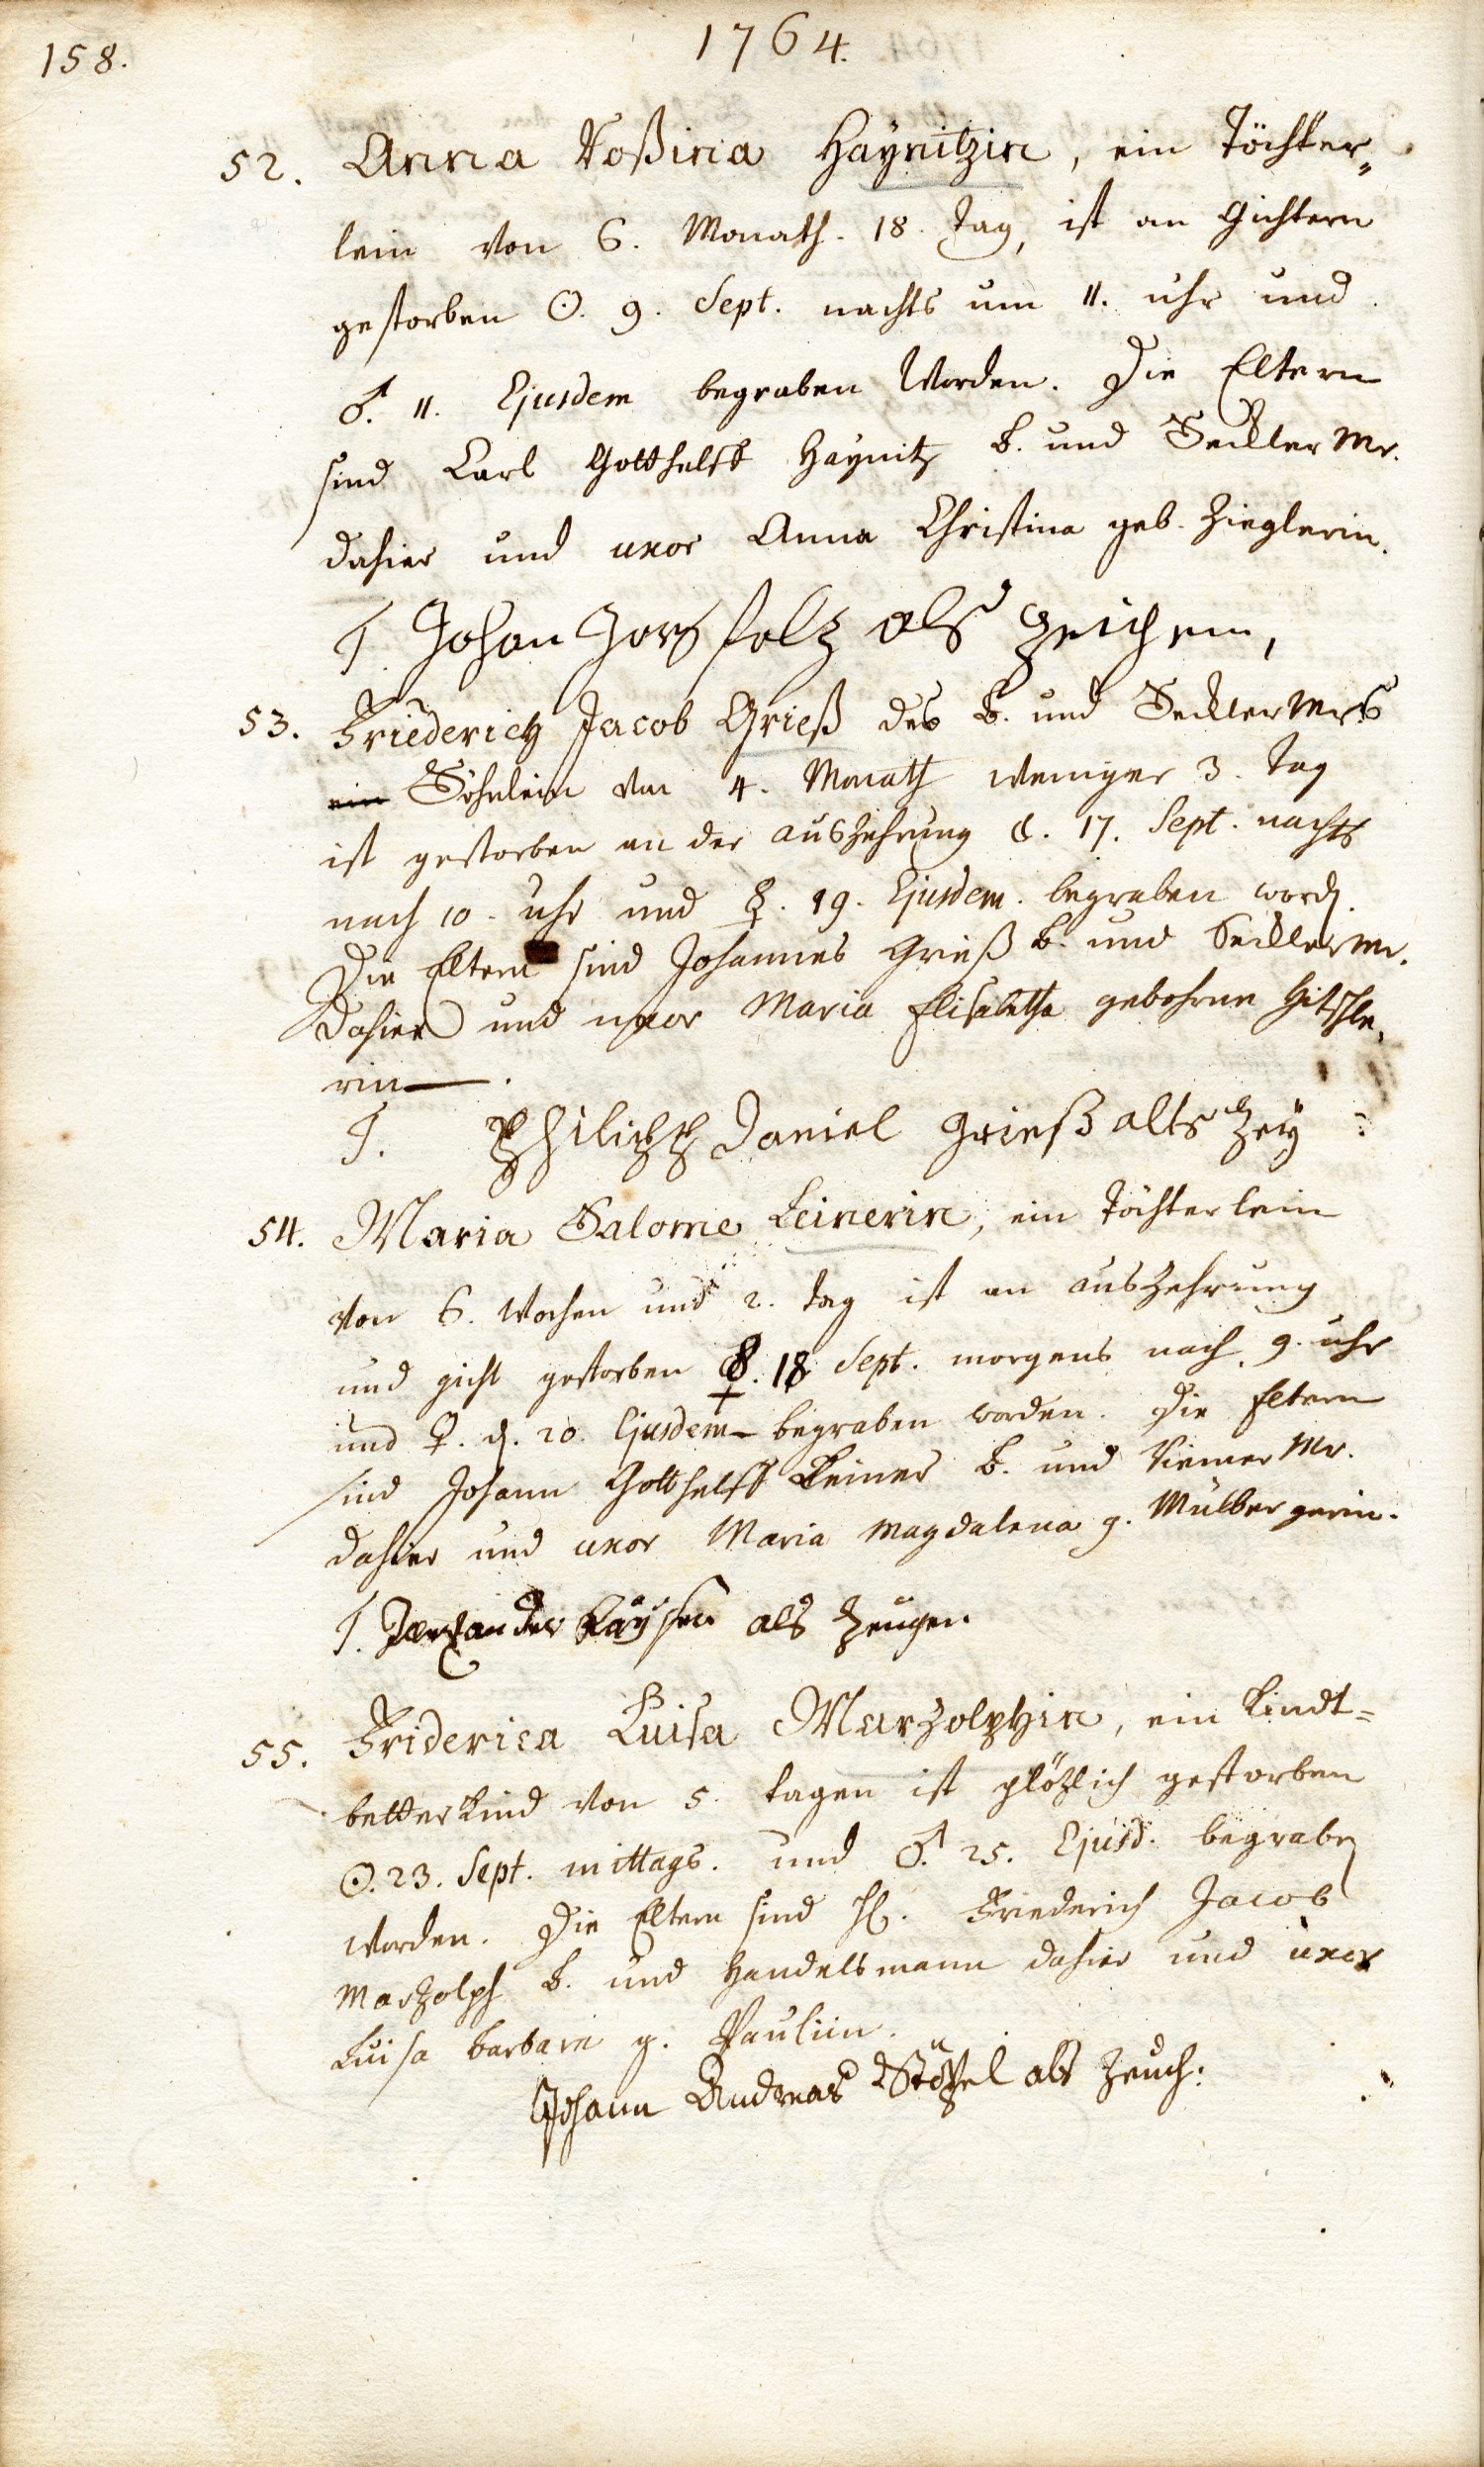 158.
1764.
52. Anna Roßina Haynitzin, ein Töchter„
lein von 6. Monath. 18. Tag, ist an Gichtern
gestorben ☉. 9. Sept. nachts um 11. uhr und
♂. 11. Ejusdem begraben worden. Die Eltern
sind Carl Gotthelff Haynitz B. und Seckler Mr.
dahier und uxor Anna Christina geb. Zieglerin.
T. Johan als
53. Friederich Jacob Grieß des B. und Seckler Mrs
ein Söhnlein von 4. Monath weniger 3. Tag
ist gestorben an der auszehrung d. 17. Sept. nachts
nach 10. uhr und ☿. 19. Ejusdem. begraben word.
Die Eltern sind Johannes Grieß B. und Seckler Mr.
dahier und uxor Maria Elisabetha gebohrne Hitschle„
rin.
T. Philipp Daniel Grieß alls Zeÿ:
54. Maria Salome Leinerin, ein Töchterlein
von 6. Wochen und 2. Tag ist an auszehrung
und gicht gestorben 18 Sept. morgens nach 9. uhr
und d. 20. Ejusdem begraben worden. Die Eltern
sind Johann Gotthelff Leiner B. und Riemer Mr.
dahier und uxor Maria Magdalena g. Müllbergerin.
T. Kaÿser als Zeugen
55. Friderica Luisa Marzolphin, ein Kindt=
betterkind von 5. tagen ist plözlich gestorben
☉. 23. Sept. mittags. und ♂. 25. Ejusd. begraben
worden. Die Eltern sind H. Friederich Jacob
Marzolph B. und Handelsmann dahier und uxor
Luisa Barbara g. Paulün.
Johann Andreas Stößel als Zeuch: